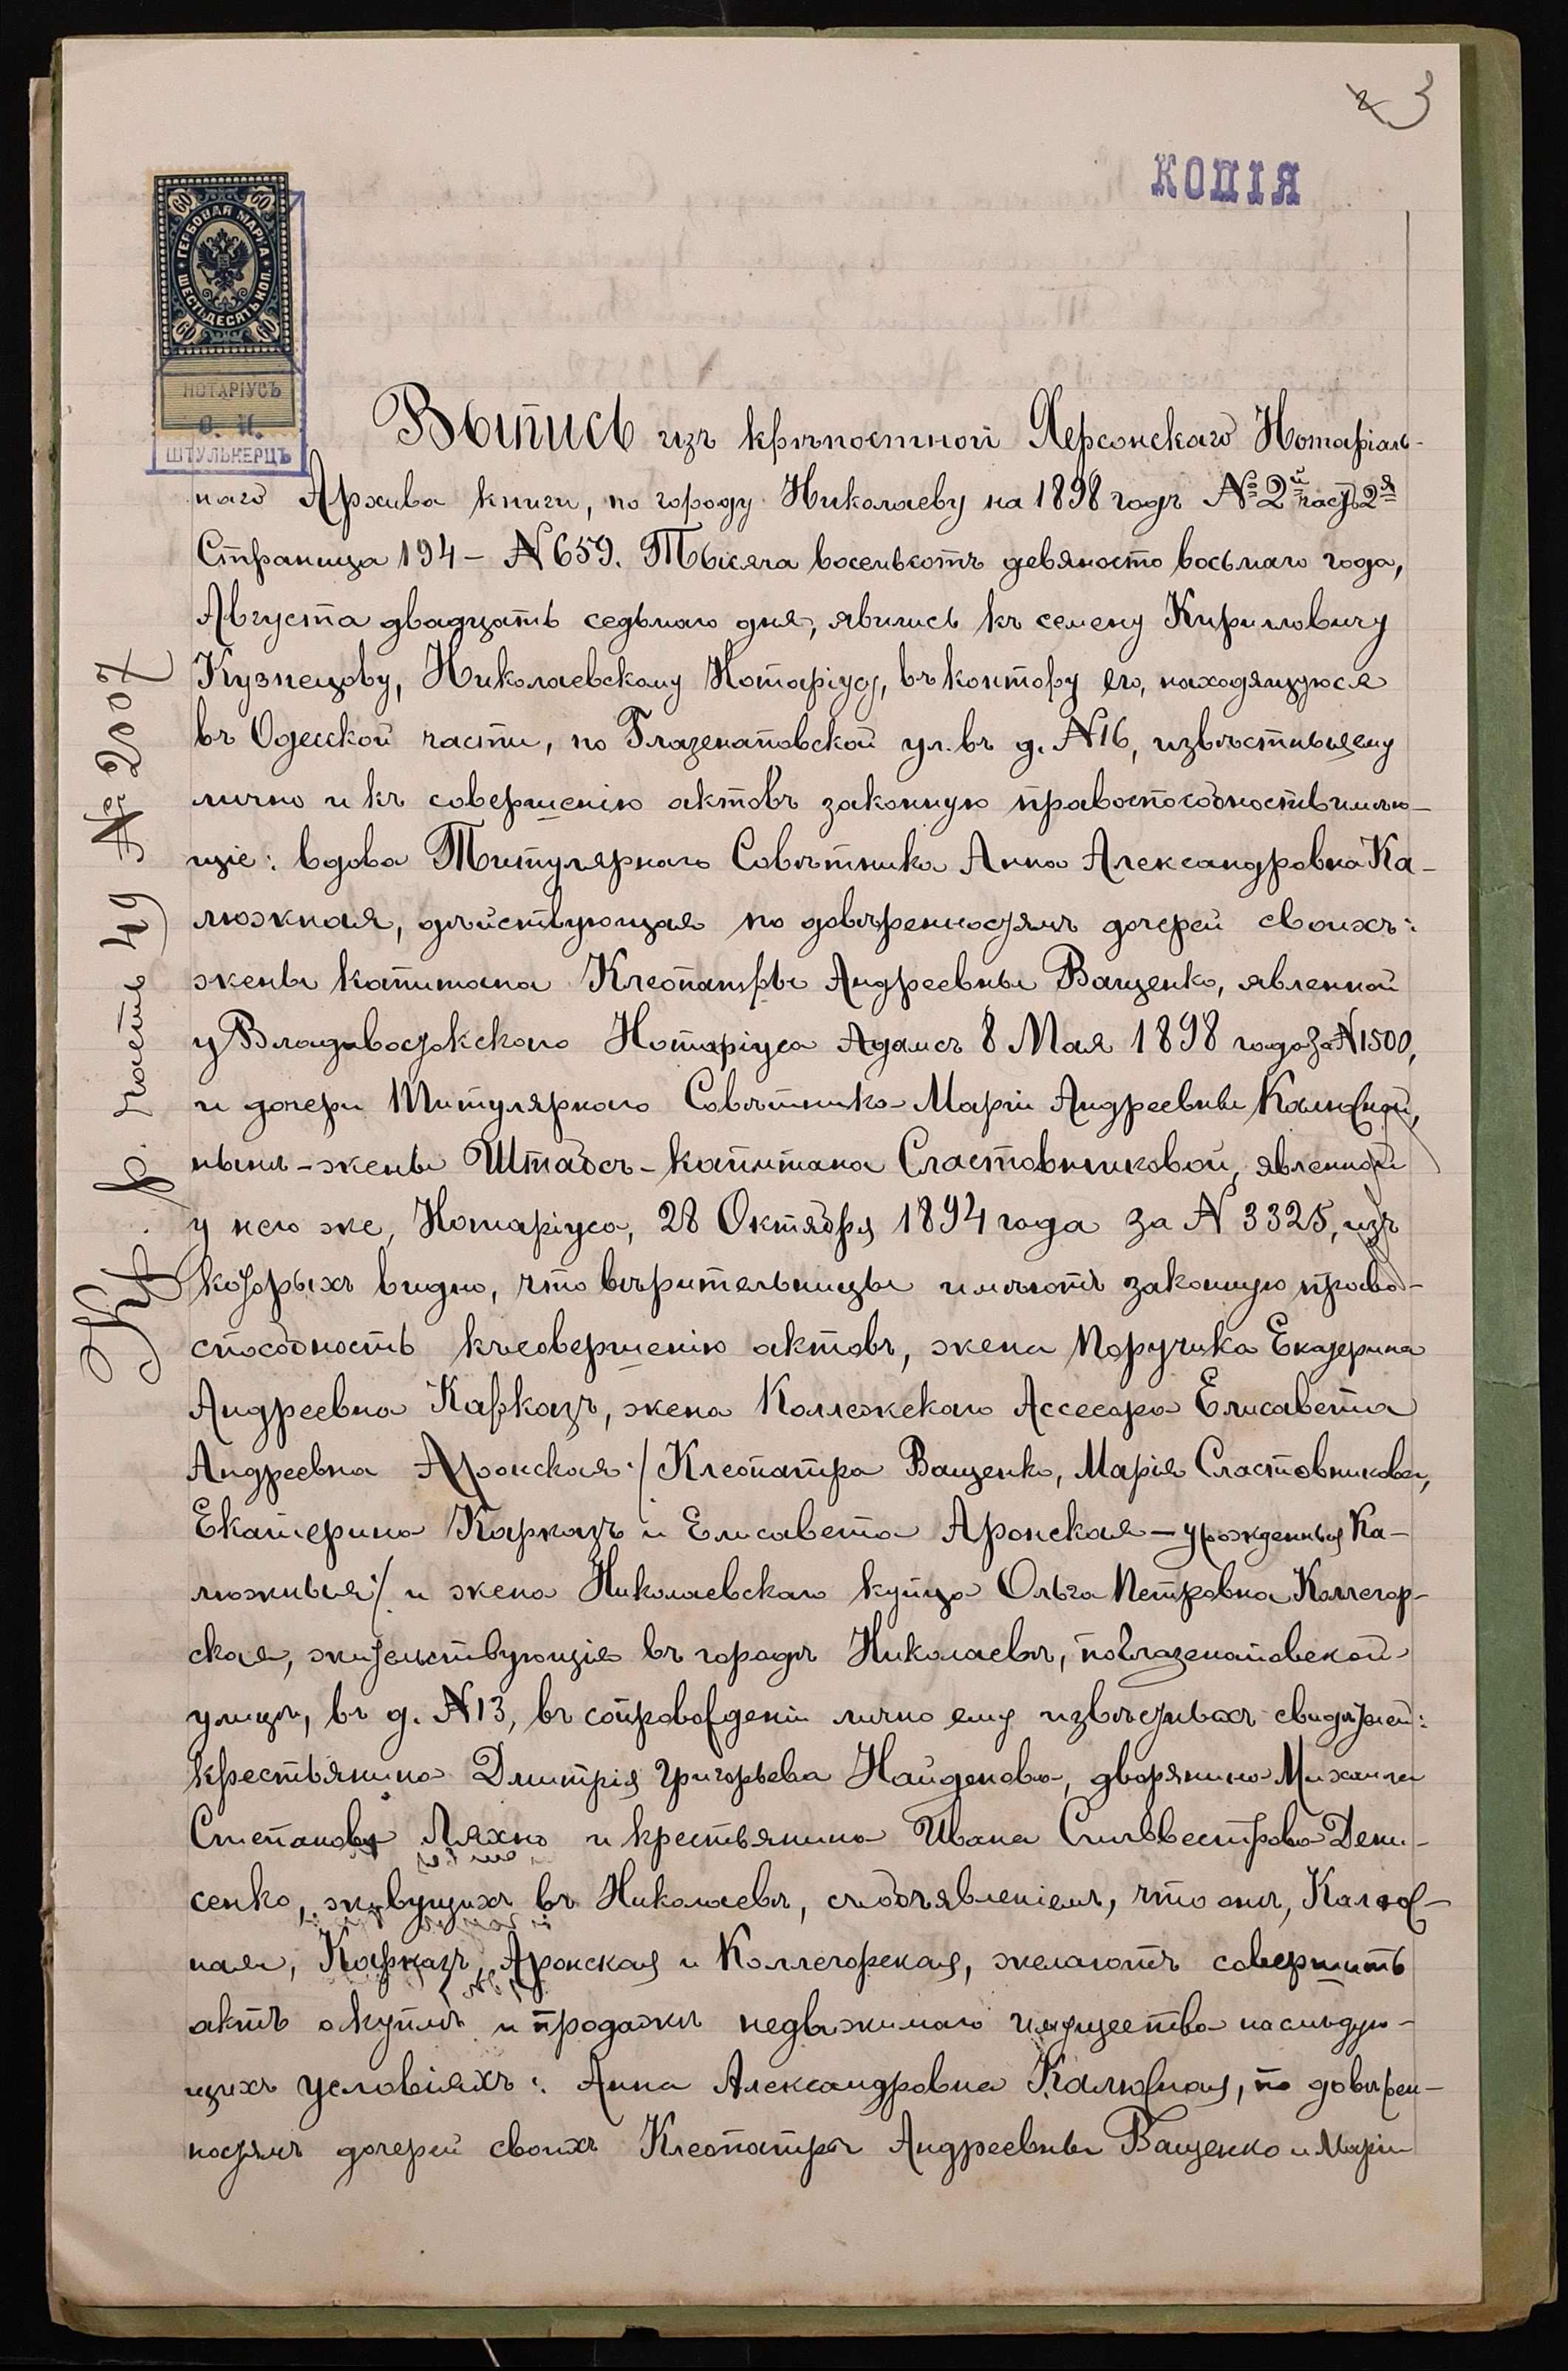 3
КОПІЯ
60 60
ГЕРБОВАЯ МАРКА
ШЕСТЬДЕСЯТЬ КОП.
60 60
НОТАРІУСЪ
О. И.
ШТУЛЬКЕРЦЪ
Выпись изъ крѣпостной Херсонскаго Нотаріаль-
наго Архива книги, по городу Николаеву на 1898 годъ № 2й часть 2я
Страница 194 – № 659. Тысяча восемьсотъ девяносто восьмаго года,
Августа двадцать седьмаго дня, явились къ Семену Кирилловичу
Кузнецову, Николаевскому Нотаріусу, въ контору его, находящуюся
въ Одесской части, по Глазенаповской ул. въ д. № 16, извѣстныя ему
лично и къ совершенію актовъ законную правоспособность имѣю-
щіе: вдова Титулярнаго Совѣтника Анна Александровна Ка-
люжная, дѣйствующая по довѣренностямъ дочерей своихъ:
жены капитана Клеопатры Андреевны Ващенко, явленной
у Владивостокскаго Нотаріуса Адамсъ 8 Мая 1898 года за № 1500,
и дочери Титулярнаго Совѣтника Маріи Андреевны Калюжной,
нынѣ – жены Штабсъ-капитана Сластовниковой, явленной
у него же, Нотаріуса, 28 Октября 1894 года за № 3325, изъ
которыхъ видно, что вѣрительницы имѣютъ законную право-
способность къ совершенію актовъ, жена Поручика Екатерина
Андреевна Карказъ, жена Коллежскаго Ассесора Елисавета
Андреевна Аронская /: Клеопатра Ващенко, Марія Сластовникова,
Екатерина Карказъ и Елисавета Аронская – урожденныя Ка-
люжныя :/ и жена Николаевскаго купца Ольга Петровна Коллегор-
ская, жительствующія въ городѣ Николаевѣ, по Глазенаповской
улицѣ, въ д. № 13, въ сопровожденіи лично ему извѣстныхъ свидѣтелей:
крестьянина Дмитрія Григорьева Найденова, дворянина Михаила
Степанова Ляхно и крестьянина Ивана Сильвестрова Дени-
сенко, живущихъ въ Николаевѣ, съ объявленіемъ, что онѣ, Калюж-
ная, Карказъ, Аронская и Коллегорская, желаютъ совершить
актъ о куплѣ и продажѣ недвижимаго имущества на слѣдую-
щихъ условіяхъ: Анна Александровна Калюжная, по довѣрен-
ностямъ дочерей своихъ Клеопатры Андреевны Ващенко и Маріи
Кр. часть 49 № 2007